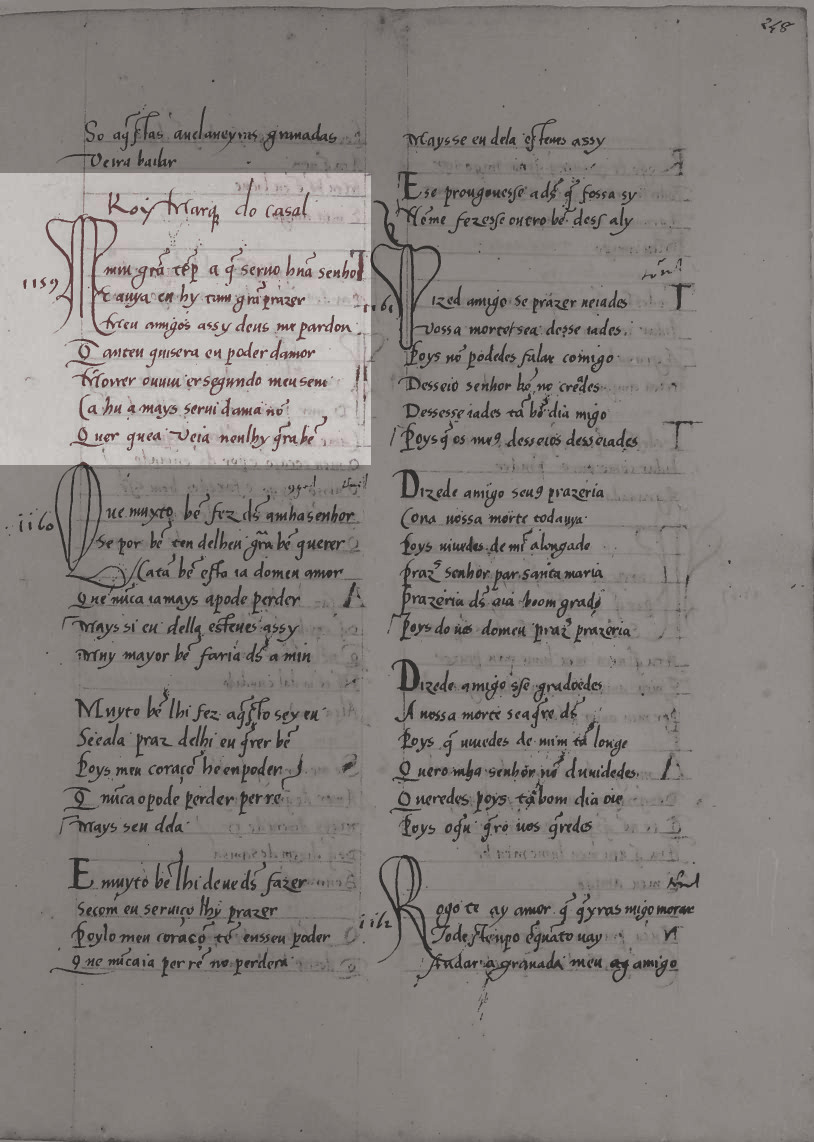 248
So aq̄stas auelaneyras granadas
Verra bailar
Roy Marq̄ do casal
1159
Muy grã tēp a q̄ seruo hūa senhor
E auya en hy tam grã prazer
Meu amigos assy deus me pardon
Q̄ ante quisera eu poder damor
Morrer ouuiuer segundo meu sem
Ca hu a mays serui dama nō
Quer que a veia nen lhy q̄ra bē
1160
Que muyto bē fez ds̄ a mha senhor
Se por bē ten delheu grã bē querer
Catã bē esto ia domeu amor
Que nūca iamays a pode perder
Mays si eu della esteues assy
Muy mayor bē faria ds̄ a min
Muyto bē lhi fez aq̄sto sey eu
Seeala praz delhi eu q̄rer bē
Poys meu coraçō he en poder
Q̄ nūca o pode perder per rē
Mays seu dela
E muyto bē lhi deue ds̄ fazer
Secom eu seruiço lhy prazer
Poylo meu coraçō tē en sseu poder
Que nūca ia per rē no perdera
Maysse eu dela esteues assy
E se prouguuesse a ds̄ q̄ fossa sy
Nō me fezesse outro bē dess aly
1161
Dized amigo se prazer ueiades
Vossa morte sea desseiades
Poys nō podedes falar comigo
Desseio senhor bē no creedes
Dessesseiades tā bō dia migo
Poys q̄ os me9 desseios desseiades
Dizede amigo seu9 prazeria
Cona uossa morte todauya
Poys uiuedes de mī alongado
Praz senhor par santa maria
Prazeria ds̄ aia boom grado
Poys do uos domeu praz̄ prazeria
Dizede amigo sse gradoedes
A uossa morte sea q̄re ds̄
Poys q̄ uiuedes de mim tā longe
Quero mha senhor nō duuidedes
Queredes poys tā bom dia oie
Poys o q̄ eu q̄ro uos q̄redes
1162
Rogo te ay amor q̄ q̄yras migo morar
Tod este tenpo ēquato uay
Andar a granada meu amigo